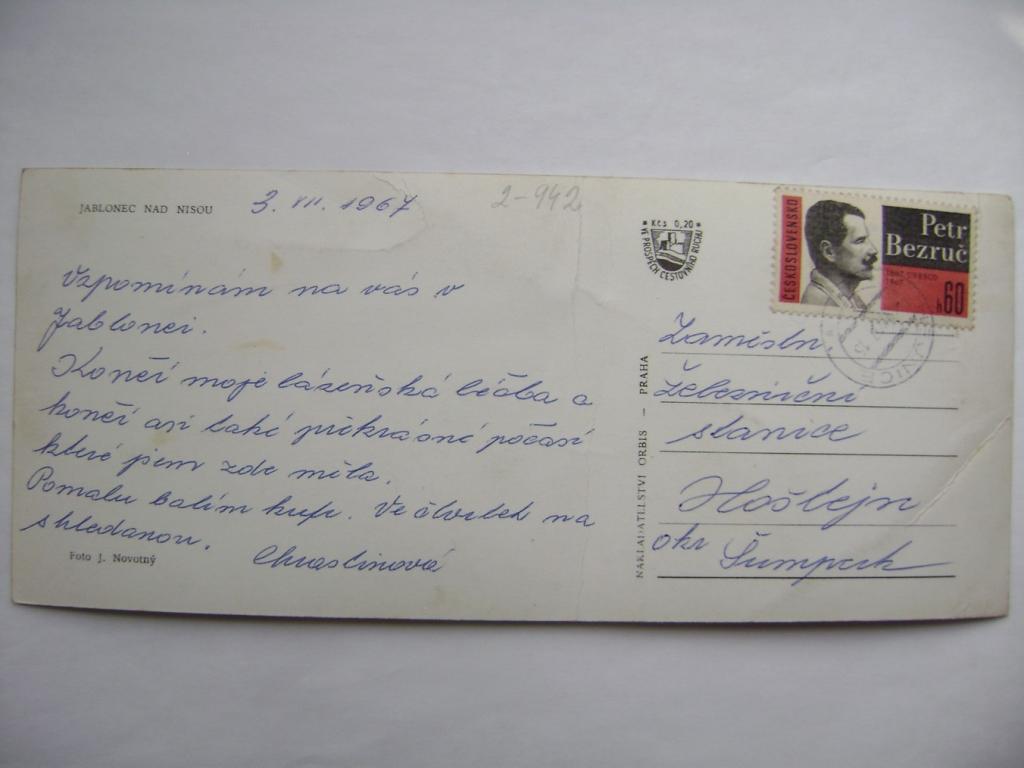 JABLONEC NAD NISOU
3. VII. 1967
2-942
Vzpomínám na vás v
Jablonci.
Končí moje lázeňská léčba a
končí asi také překrásné počasí
které jsem zde měla.
Pomalu balím kufr. Ve čtvrtek na
shledanou.
Chrastinová
Foto J. Novotný
Kčs 0,20
VE PROSPĚCH CESTOVNÍHO RUCHU
NAKLADATELSTVÍ ORBIS — PRAHA
ČESKOSLOVENSKO
Petr
Bezruč
1867 UNESCO
1967
h60
Zaměstn
Železniční
stanice
Hoštejn
okr Šumperk